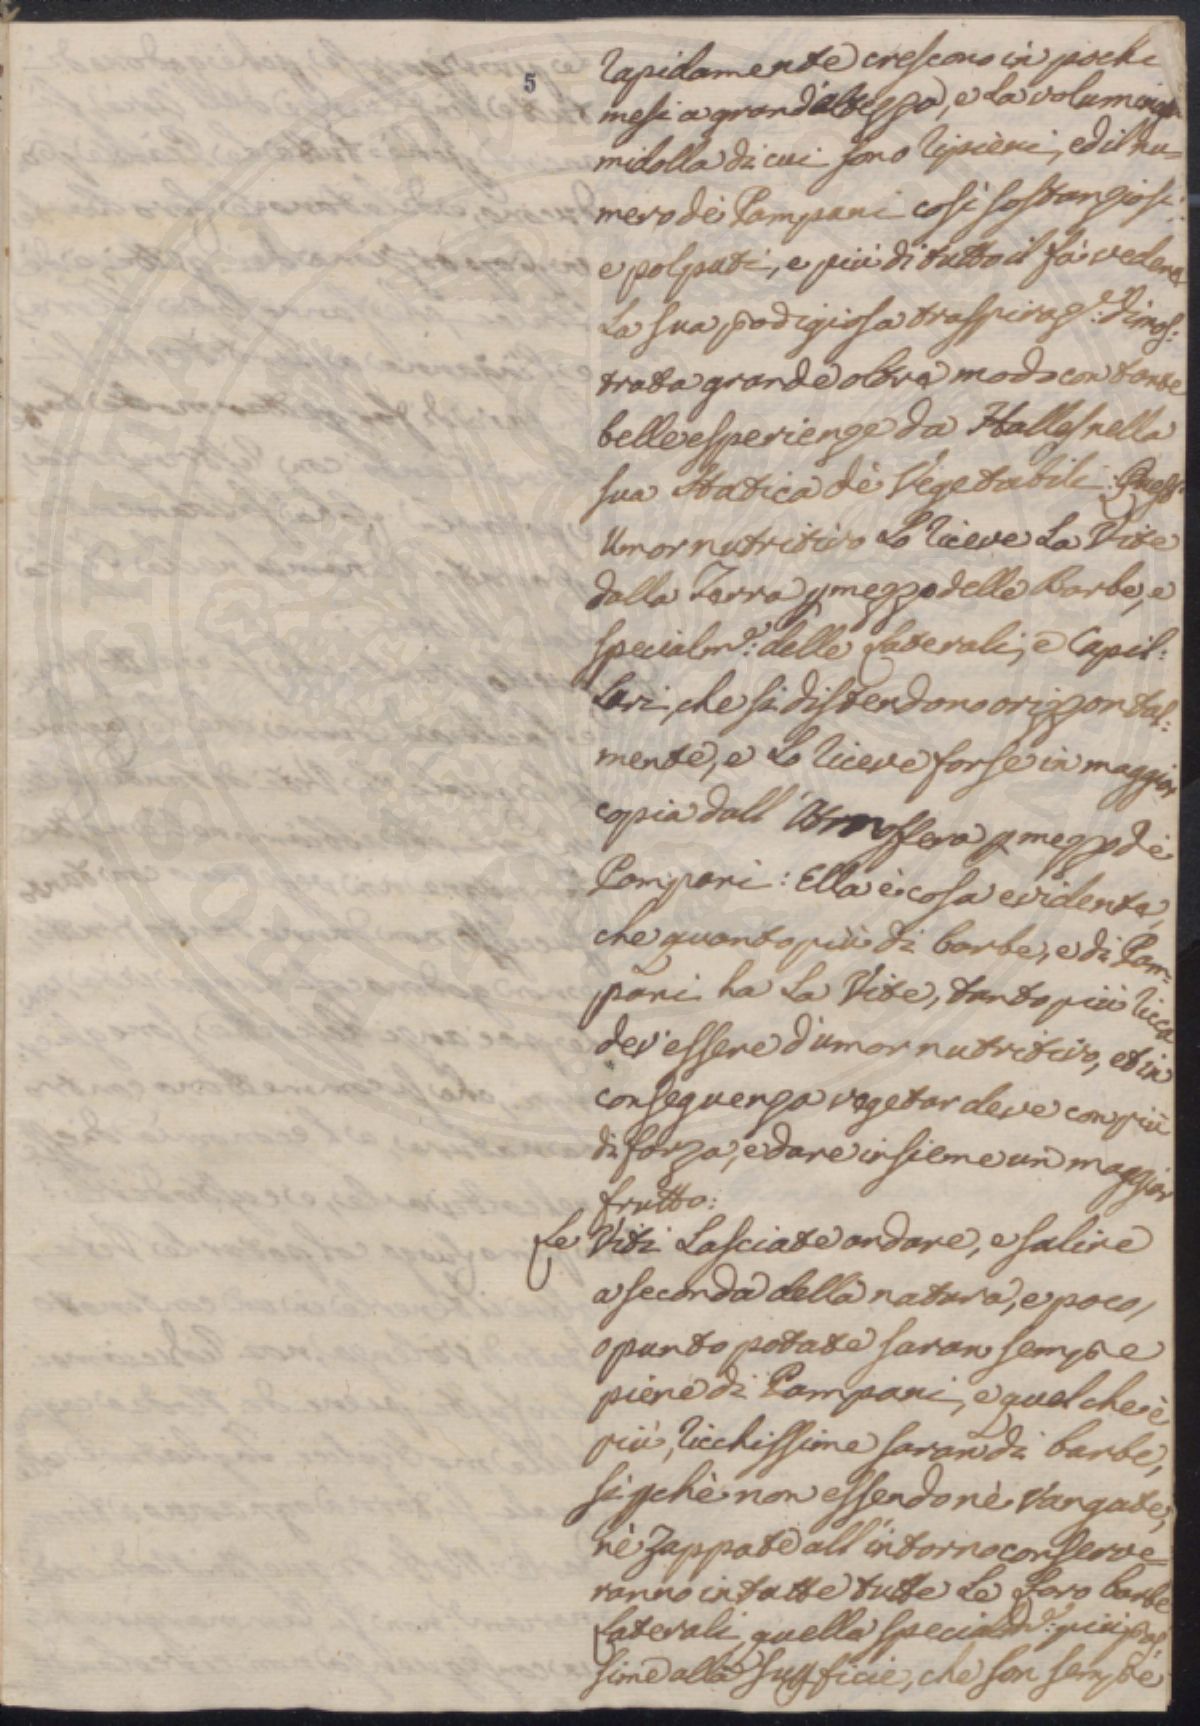 5
rapidamente crescono in pochi
mesi a grand'altezza, e la voluminosa
midolla di cui sono ripieni, ed il nu=
mero dè Pampani così sostanziosi
e polputi, e più di tutto il fà vedere
La sua prodigiosa traspiraz.e: dimos:
trata grande oltra modo con tante
belle esperienze da Halles nella
sua Statica dè Vegetabili: Quest'
Umor nutritivo Lo riceve La Vite
dalla Terra p mezzo delle Barbe, e
specialm.e: delle Laterali, e Capil:
Lari, che si distendono orizzontal:
mente, e Lo riceve forse in maggior
copia dall' Atmosfera p mezzo dè
Pampani: Ella è cosa evidente,
che quanto più di barbe, e di Pam=
pani ha La Vite, tanto più ricca
dev'essere d'umor nutritivo, et in
conseguenza vegetar deve con più
di forza, e dare insieme un maggior
frutto:
Le Viti Lasciate andare, e salire
a seconda della natura, e poco,
o punto potate saran sempre
piene di Pampani, e quel che è
più, ricchissime saran di barbe,
si pchè non essendo nè Vangate,
nè Zappate all'intorno conserve=
ranno intatte tutte Le Loro barbe
Laterali, quelle specialm.e: più pros:
sime alla supficie, che son sempre